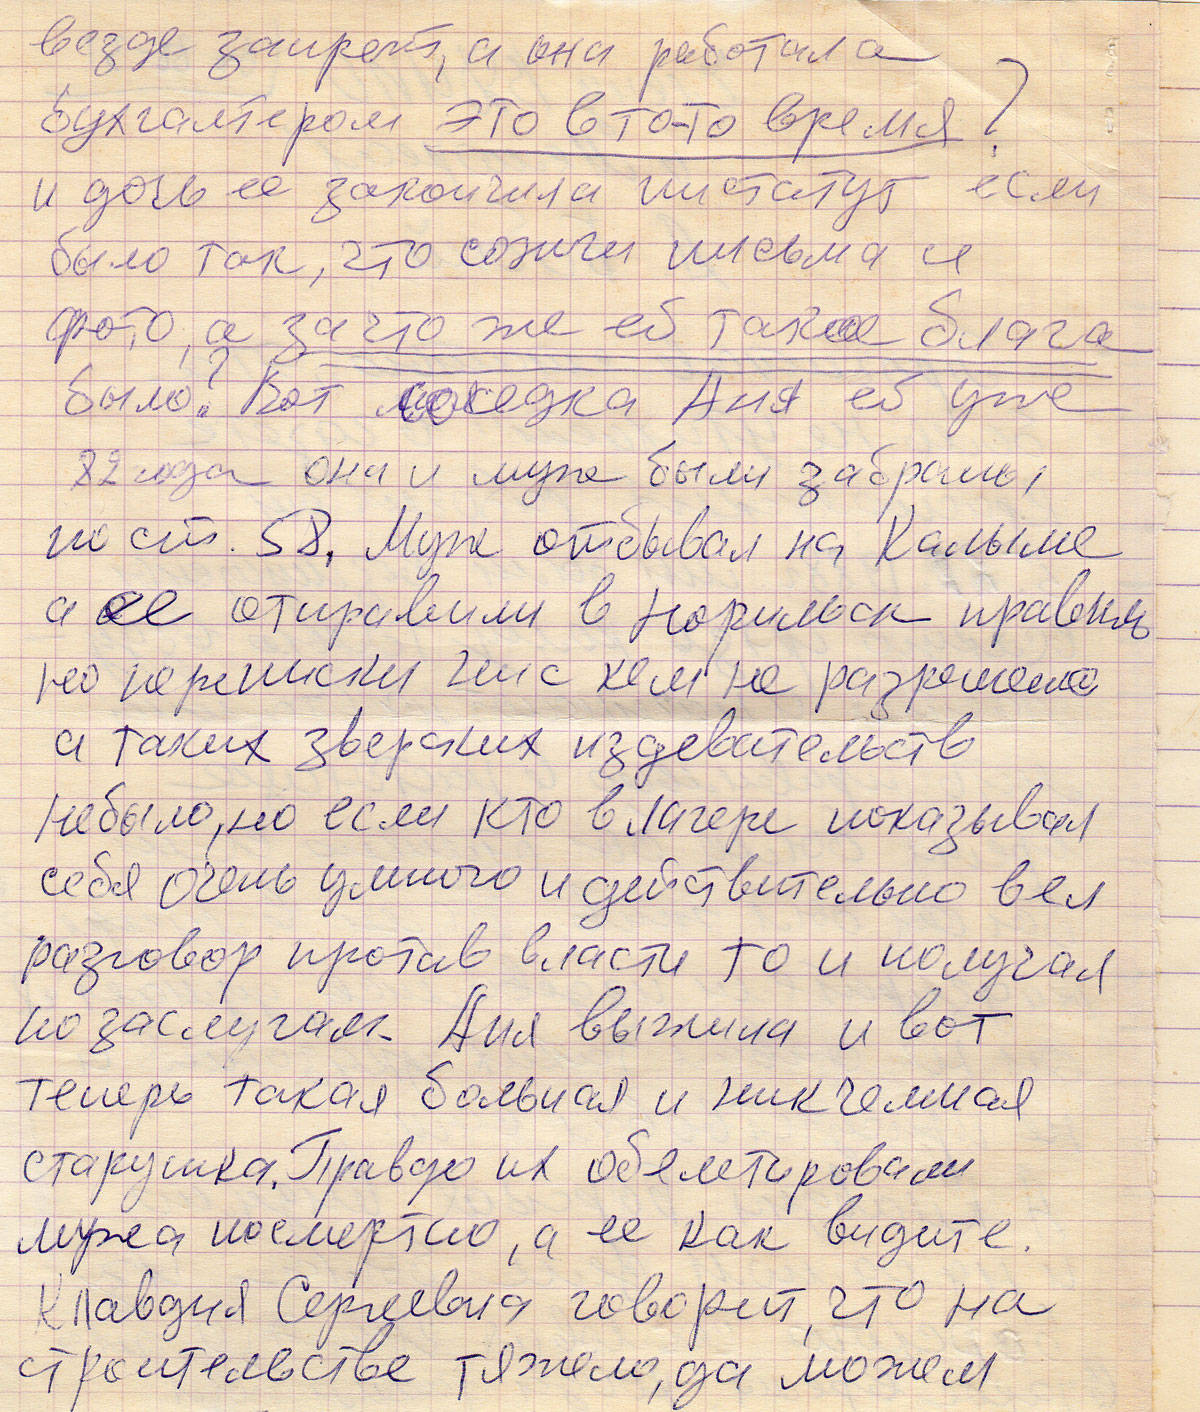 везде запрет, а она работала
бухгалтером это в то-то время?
и дочь ее закончила институт если
было так, что сожгли письма и
фото, а за что же ей такое блага
было? Вот соседка Аня ей уже
82 года она и муж были забраны,
по ст. 58, Муж отбывал на Калыме
а ее отправили в Норильск правиль
но переписки ни с кем не разрешено
а таких зверских издевательств
небыло, но если кто в лагере показывал
себя очень умного и действительно вел
разговор против власти то и получал
по заслугам. Аня выжила и вот
теперь такая больная и никчемная
старушка. Правда их
мужа посмертно, а ее как видите.
Клавдия Сергеевна говорит, что на
строительстве тяжело, да можем